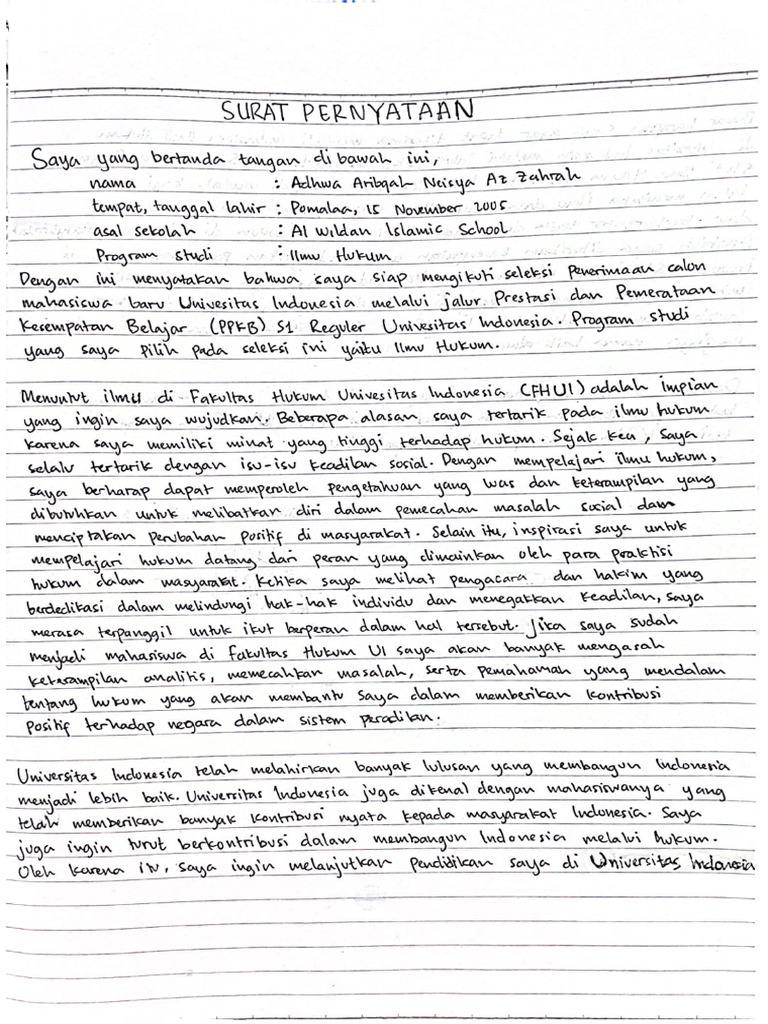 SURAT PERNYATAAN
Saya yang bertanda tangan di bawah ini,
nama : Adhwa Aribqah Neisya Az Zahrah
tempat, tanggal lahir : Pomalaa, 15 November 2005
asal sekolah : Al Wildan Islamic School
Program studi : Ilmu Hukum
Dengan ini menyatakan bahwa saya siap mengikuti seleksi penerimaan calon
mahasiswa baru Univesitas Indonesia melalui jalur Prestasi dan Pemerataan
Kesempatan Belajar (PPKB) S1 Reguler Univesitas Indonesia. Program studi
yang saya pilih pada seleksi ini yaitu Ilmu Hukum.
Menuntut ilmu di Fakultas Hukum Univesitas Indonesia (FHUI) adalah impian
yang ingin saya wujudkan. Beberapa alasan saya tertarik pada ilmu hukum
karena saya memiliki minat yang tinggi terhadap hukum. Sejak kecil, saya
selalu tertarik dengan isu-isu keadilan sosial. Dengan mempelajari ilmu hukum,
saya berharap dapat memperoleh pengetahuan yang luas dan keterampilan yang
dibutuhkan untuk melibatkan diri dalam pemecahan masalah sosial dan
menciptakan perubahan positif di masyarakat. Selain itu, inspirasi saya untuk
mempelajari hukum datang dari peran yang dimainkan oleh para praktisi
hukum dalam masyarakat. Ketika saya melihat pengacara dan hakim yang
berdedikasi dalam melindungi hak-hak individu dan menegakkan keadilan, saya
merasa terpanggil untuk ikut berperan dalam hal tersebut. Jika saya sudah
menjadi mahasiswa di Fakultas Hukum UI saya akan banyak mengasah
keterampilan analitis, memecahkan masalah, serta pemahaman yang mendalam
tentang hukum yang akan membantu saya dalam memberikan kontribusi
positif terhadap negara dalam sistem peradilan.
Universitas Indonesia telah melahirkan banyak lulusan yang membangun Indonesia
menjadi lebih baik. Universitas Indonesia juga dikenal dengan mahasiswanya yang
telah memberikan banyak kontribusi nyata kepada masyarakat Indonesia. Saya
juga ingin turut berkontribusi dalam membangun Indonesia melalui hukum.
Oleh karena itu, saya ingin melanjutkan pendidikan saya di Universitas Indonesia